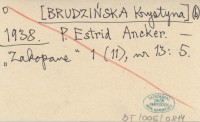 [BRUDZIŃSKA Krystyna]
1938. P. Estrid Ancker. —
„Zakopane" 1 (11), nr 13: 5.
BT/006/0814